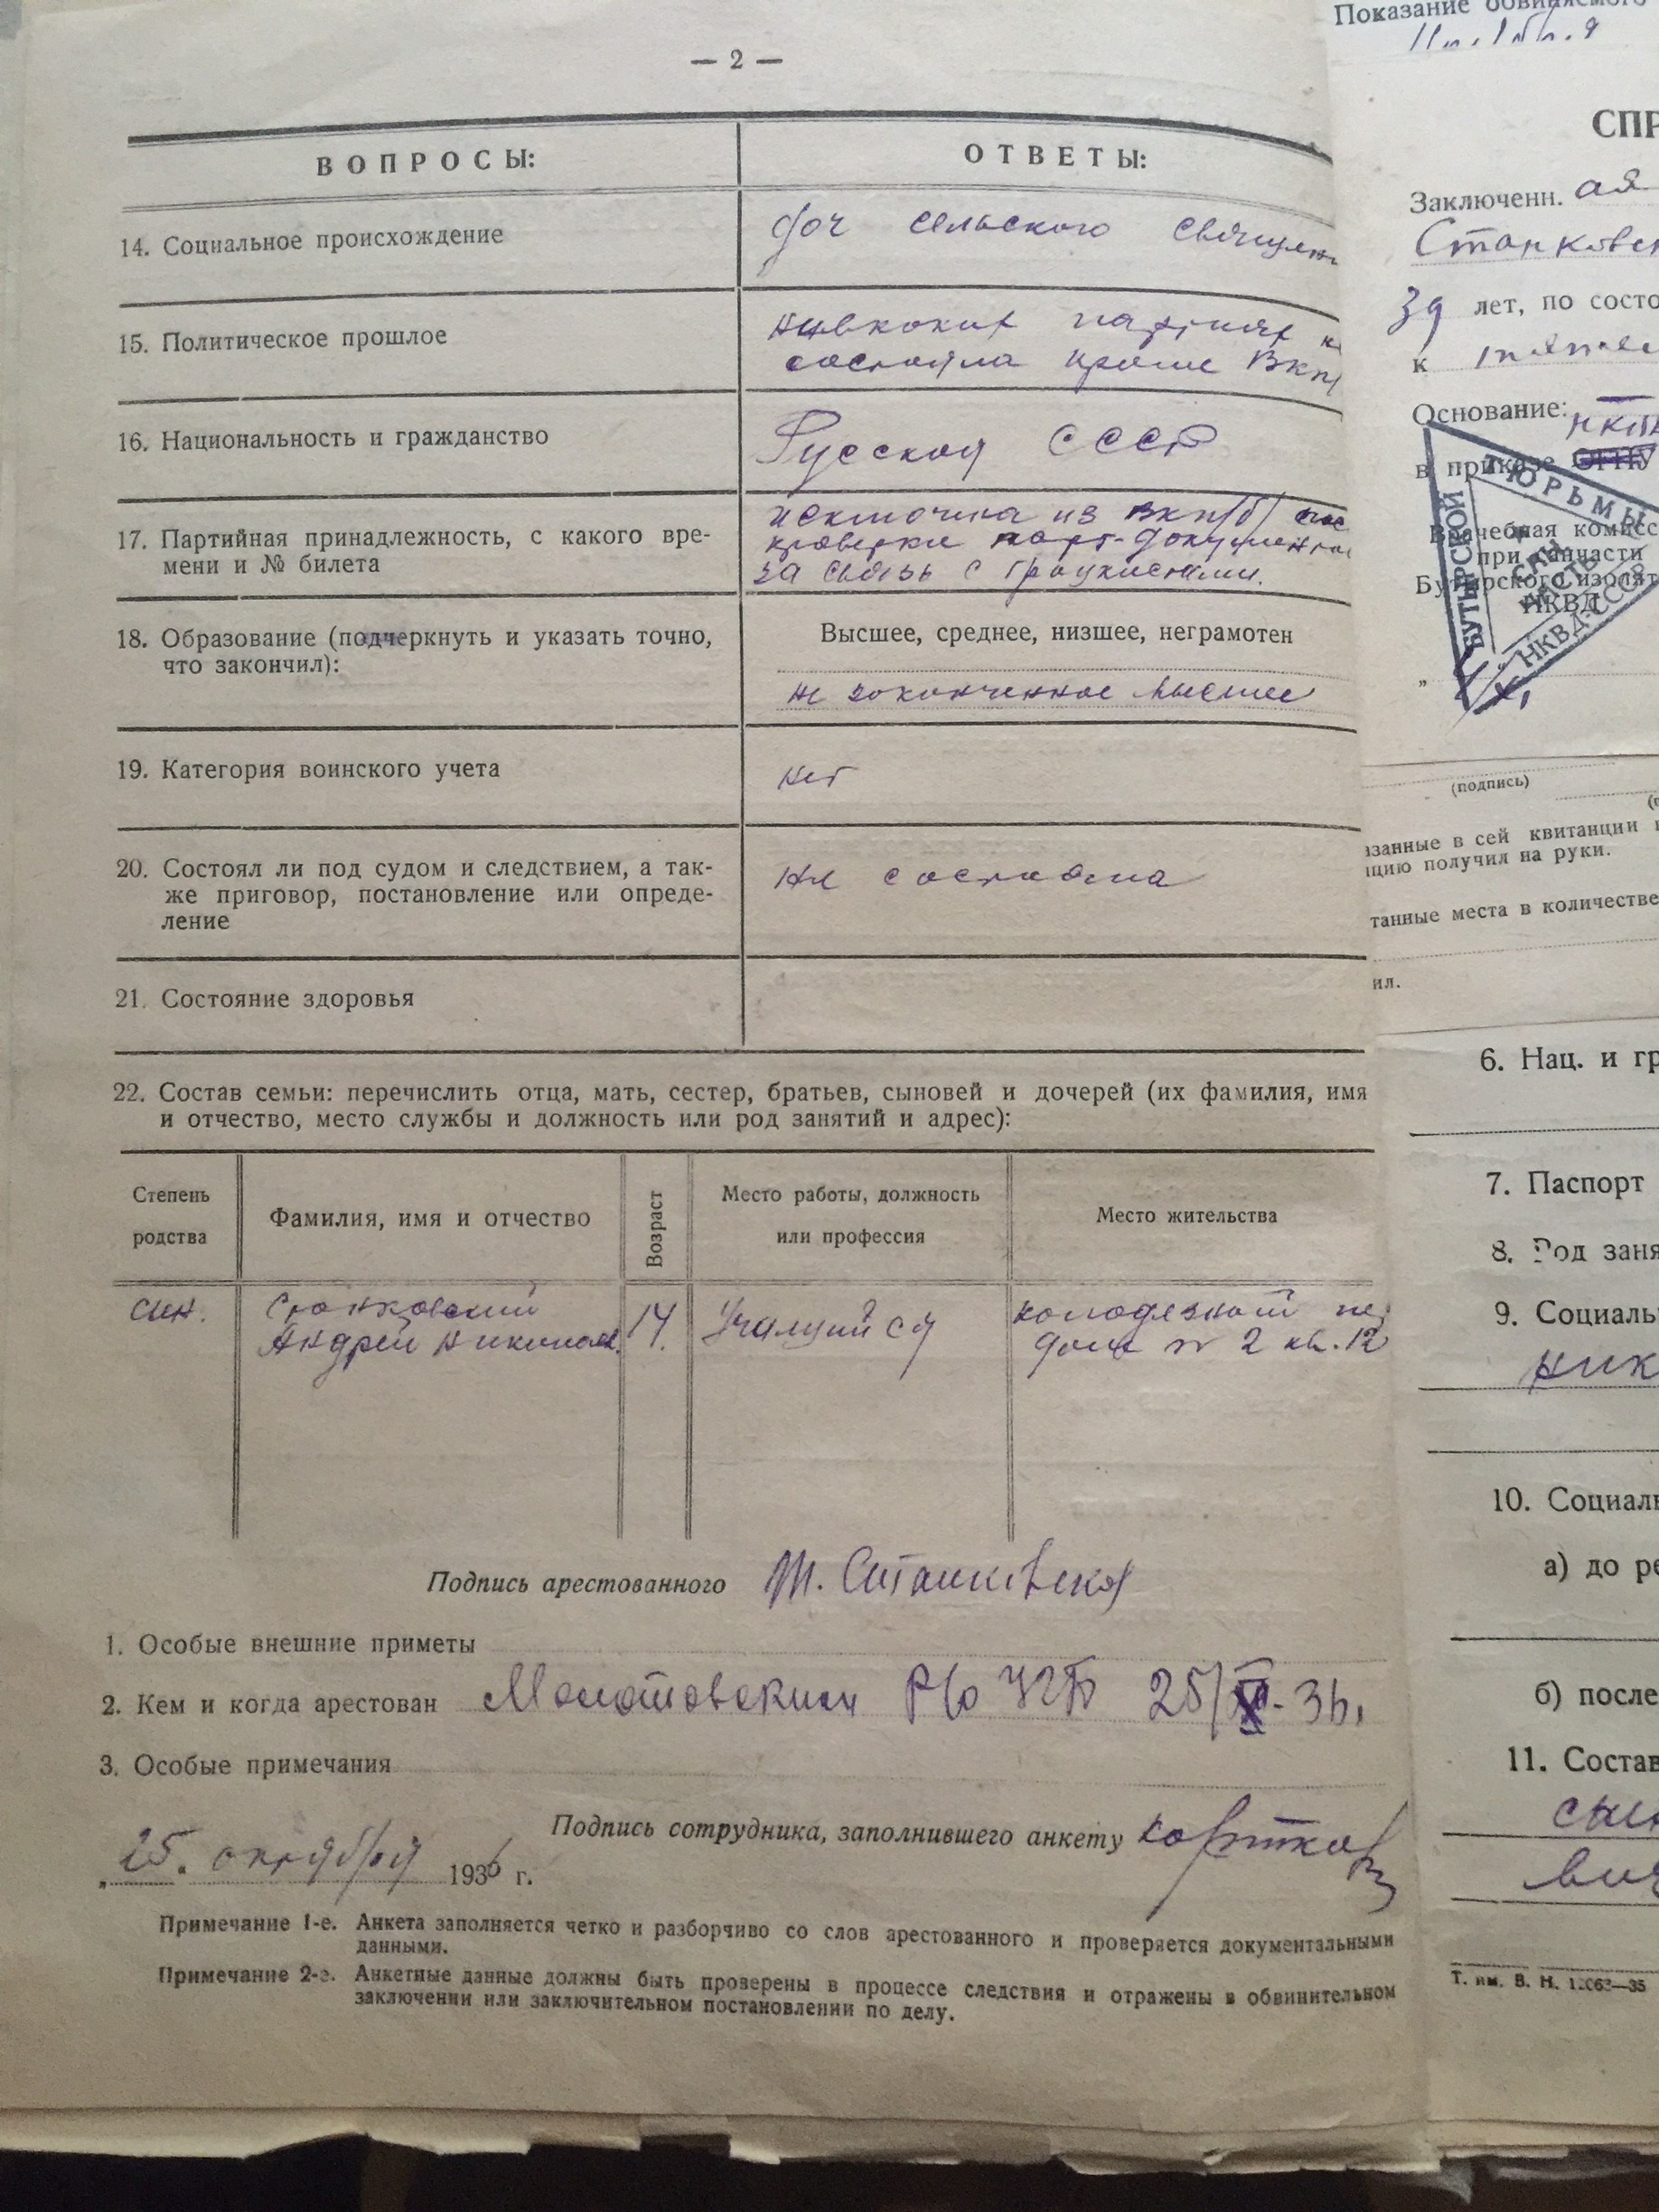 — 2 —
ВОПРОСЫ:
ОТВЕТЫ:
14. Социальное происхождение
доч сельского священ
15. Политическое прошлое
партиях
состояла кроме ВКП
16. Национальность и гражданство
Русская СССР
17. Партийная принадлежность, с какого вре-
мени и № билета
исключена из ВКП/б/
проверке парт-документов
за связь с троцкистами.
18. Образование (подчеркнуть и указать точно,
что закончил):
Высшее, среднее, низшее, неграмотен
не законченное высшее
19. Категория воинского учета
нет
20. Состоял ли под судом и следствием, а так-
же приговор, постановление или опреде-
ление
не состояла
21. Состояние здоровья
22. Состав семьи: перечислить отца, мать, сестер, братьев, сыновей и дочерей (их фамилия, имя
и отчество, место службы и должность или род занятий и адрес):
Степень
родства
Фамилия, имя и отчество
Возраст
Место работы, должность
или профессия
Место жительства
сын.
Станковский
Андрей Николаев.
14
Учащийся
колодезный пе
дом № 2 кв. 12
Подпись арестованного
Т. Станковская
1. Особые внешние приметы
2. Кем и когда арестован Молотовским Р/о УГБ 25/X-36.
3. Особые примечания
Подпись сотрудника, заполнившего анкету
„25. октября 1936 г.
Примечание 1-е. Анкета заполняется четко и разборчиво со слов арестованного и проверяется документальными
данными.
Примечание 2-е. Анкетные данные должны быть проверены в процессе следствия и отражены в обвинительном
заключении или заключительном постановлении по делу.
Показание обвиняемого
СПР
Заключенн. ая
Станковск
39 лет, по состо
к
Основание:
НКВД
в приказе ОГПУ
Врачебная комисс
при санчасти
Бутырского изолят
НКВД
БУТЫРСКОЙ
ТЮРЬМЫ
САН
ЧАСТЬ
НКВД-СССР
(подпись)
занные в сей квитанции
цию получил на руки.
танные места в количестве
ил.
6. Нац. и гр
7. Паспорт
8. Род заня
9. Социаль
10. Социаль
а) до ре
б) после
11. Состав
сын
Т. им. В. Н. 12063—35